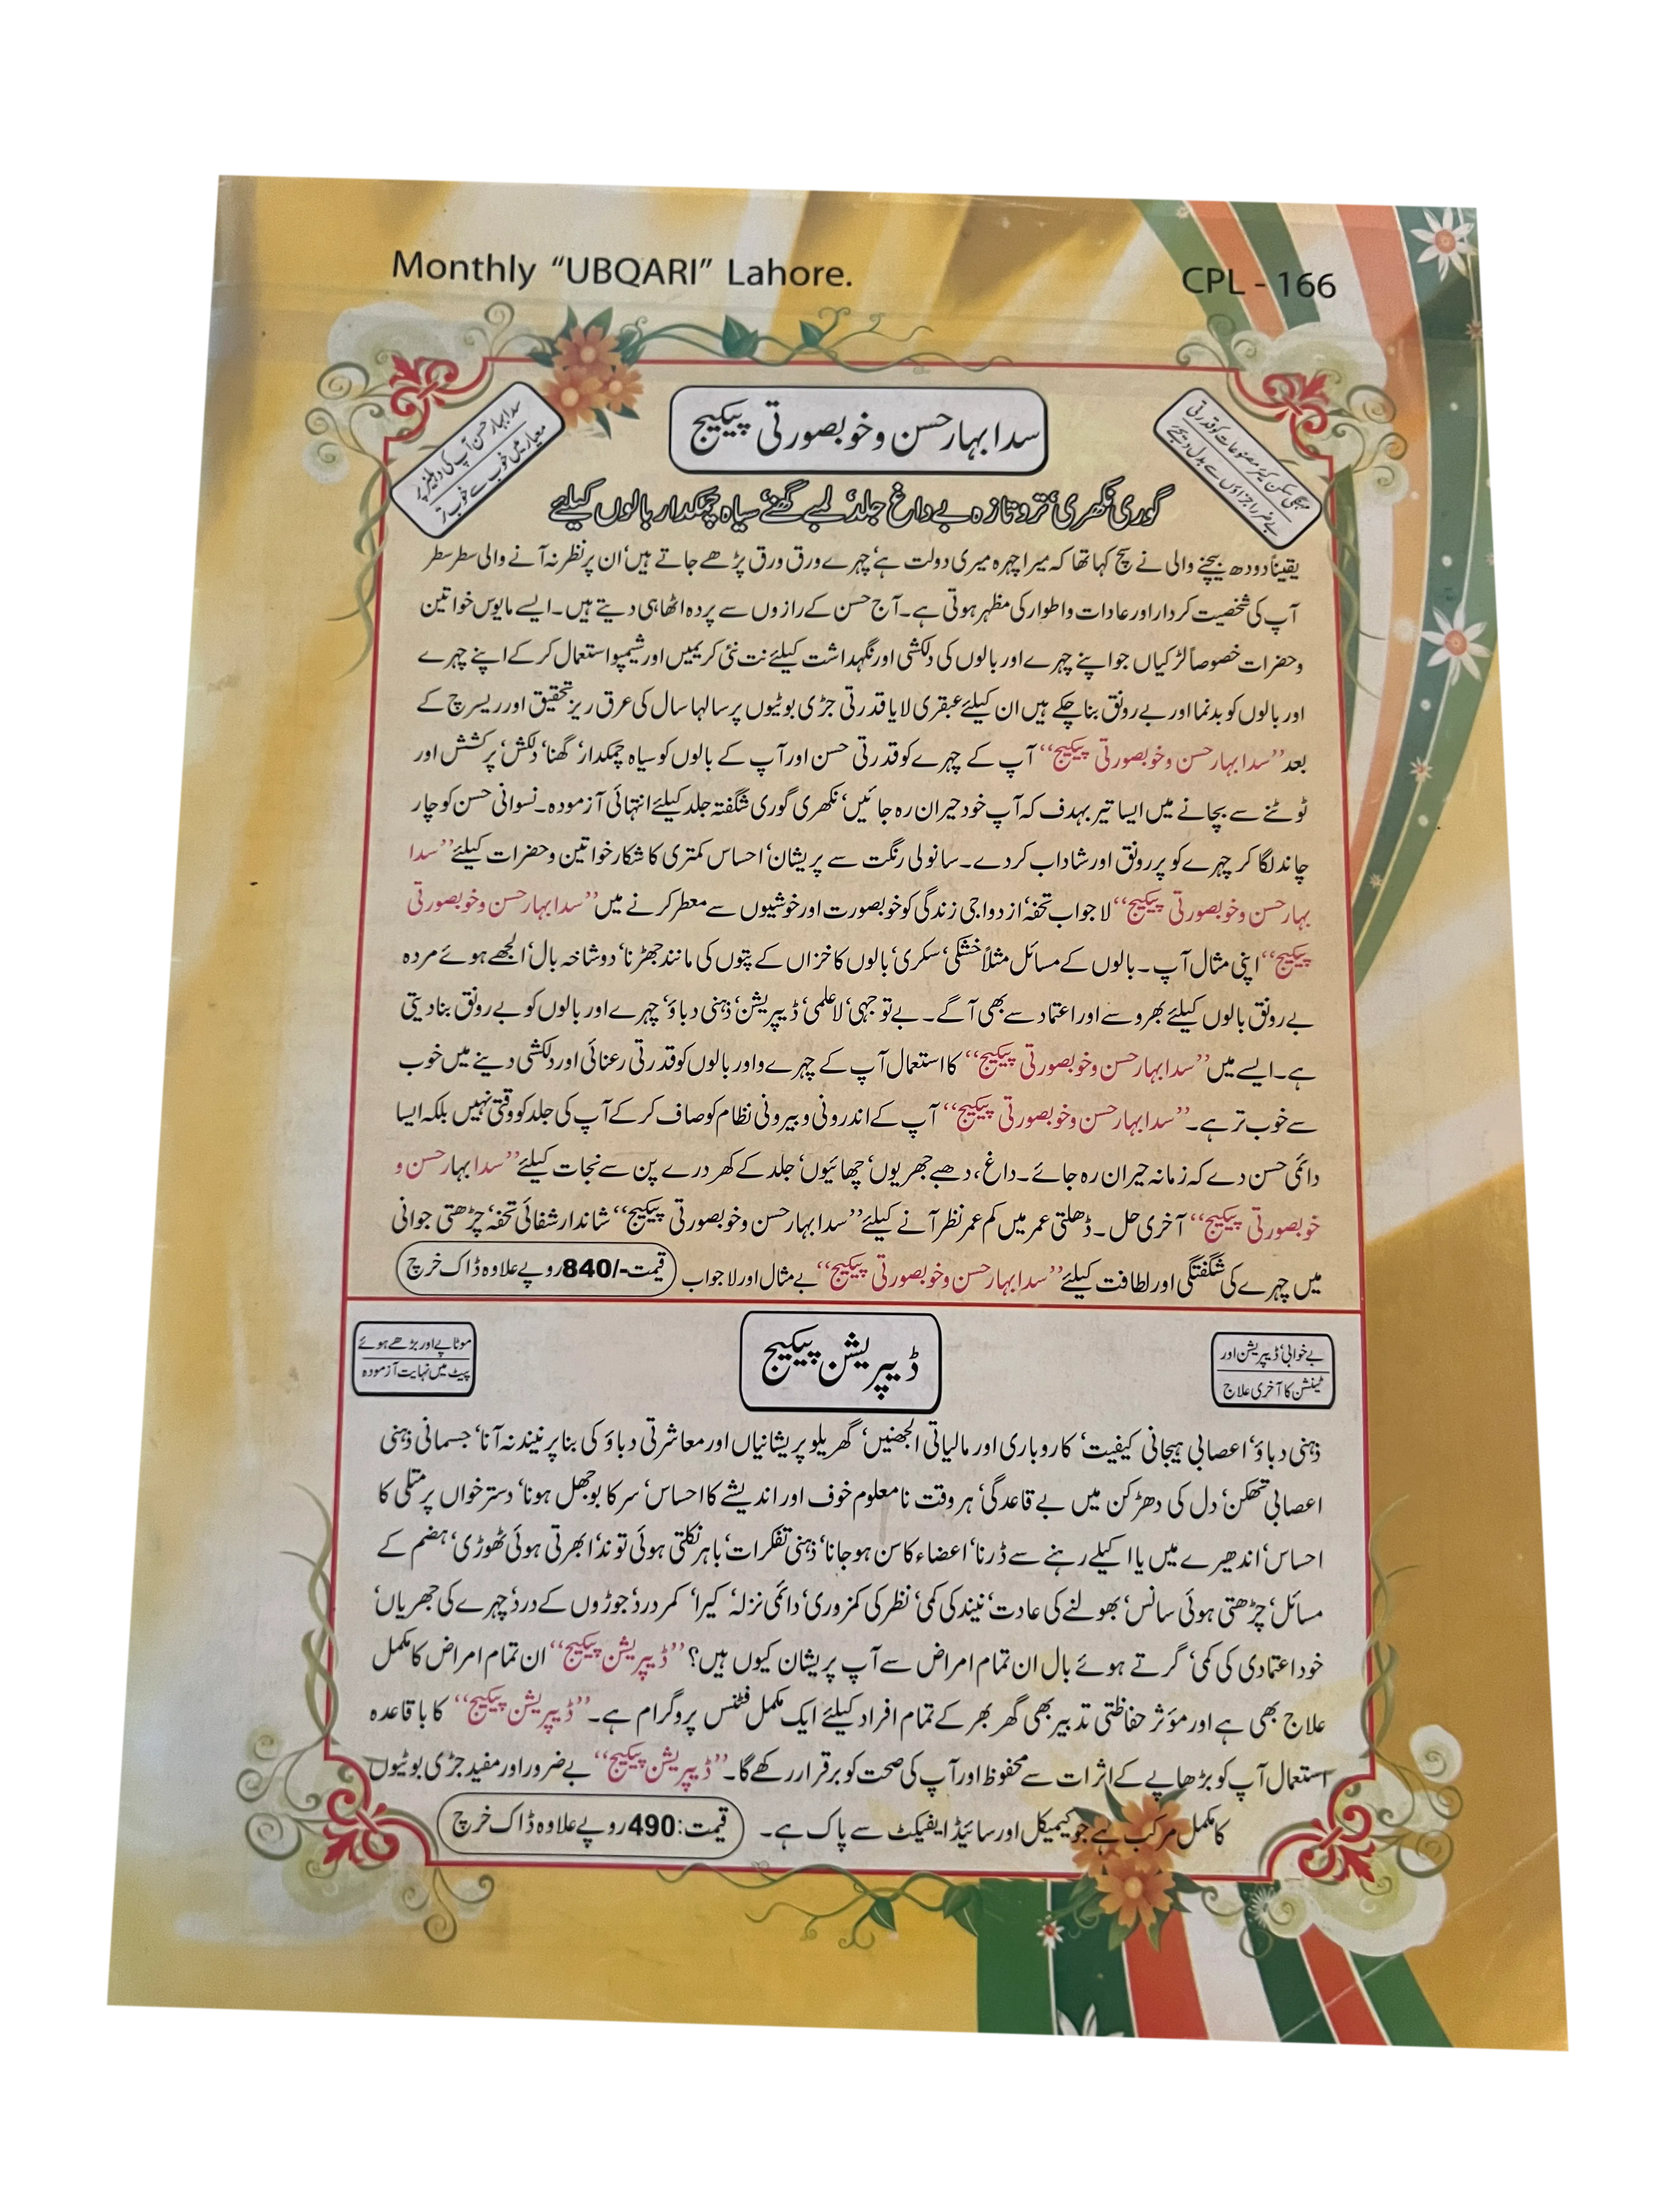 Monthly “UBQARI” Lahore.
CPL - 166
سدا بہار حسن و خوبصورتی پیکیج
مہنگی سکن کیئر مصنوعات کو قدرتی
بے ضرر اجزاؤں سے بدل دیجئے
سدا بہار حسن آپ کی دہلیز پر
معیار میں خوب سے خوب تر
گوری نکھری‘ تروتازہ بے داغ جلد‘ لمبے گھنے‘ سیاہ چمکدار بالوں کیلئے
یقیناً دودھ بیچنے والی نے سچ کہا تھا کہ میرا چہرہ میری دولت ہے‘ چہرے ورق ورق پڑھے جاتے ہیں‘ ان پر نظر نہ آنے والی سطر سطر
آپ کی شخصیت کردار اور عادات و اطوار کی مظہر ہوتی ہے۔ آج حسن کے رازوں سے پردہ اٹھا ہی دیتے ہیں۔ ایسے مایوس خواتین
و حضرات خصوصاً لڑکیاں جو اپنے چہرے اور بالوں کی دلکشی اور نگہداشت کیلئے نت نئی کریمیں اور شیمپو استعمال کر کے اپنے چہرے
اور بالوں کو بدنما اور بے رونق بنا چکے ہیں ان کیلئے عبقری لایا قدرتی جڑی بوٹیوں پر سالہا سال کی عرق ریز تحقیق اور ریسرچ کے
بعد ’’سدا بہار حسن و خوبصورتی پیکیج‘‘ آپ کے چہرے کو قدرتی حسن اور آپ کے بالوں کو سیاہ چمکدار‘ گھنا‘ دلکش‘ پرکشش اور
ٹوٹنے سے بچانے میں ایسا تیر بہدف کہ آپ خود حیران رہ جائیں‘ نکھری گوری شگفتہ جلد کیلئے انتہائی آزمودہ۔ نسوانی حسن کو چار
چاند لگا کر چہرے کو پررونق اور شاداب کر دے۔ سانولی رنگت سے پریشان‘ احساس کمتری کا شکار خواتین و حضرات کیلئے ’’سدا
بہار حسن و خوبصورتی پیکیج‘‘ لاجواب تحفہ‘ ازدواجی زندگی کو خوبصورت اور خوشیوں سے معطر کرنے میں ’’سدا بہار حسن و خوبصورتی
پیکیج‘‘ اپنی مثال آپ۔ بالوں کے مسائل مثلاً خشکی‘ سکری‘ بالوں کا خزاں کے پتوں کی مانند جھڑنا‘ دو شاخہ بال‘ الجھے ہوئے مردہ
بے رونق بالوں کیلئے بھروسے اور اعتماد سے بھی آگے۔ بے توجہی‘ لاعلمی‘ ڈیپریشن‘ ذہنی دباؤ‘ چہرے اور بالوں کو بے رونق بنا دیتی
ہے۔ ایسے میں ’’سدا بہار حسن و خوبصورتی پیکیج‘‘ کا استعمال آپ کے چہرے و اور بالوں کو قدرتی رعنائی اور دلکشی دینے میں خوب
سے خوب تر ہے۔ ’’سدا بہار حسن و خوبصورتی پیکیج‘‘ آپ کے اندرونی و بیرونی نظام کو صاف کر کے آپ کی جلد کو وقتی نہیں بلکہ ایسا
دائمی حسن دے کہ زمانہ حیران رہ جائے۔ داغ، دھبے جھریوں‘ چھائیوں‘ جلد کے کھردرے پن سے نجات کیلئے ’’سدا بہار حسن و
خوبصورتی پیکیج‘‘ آخری حل۔ ڈھلتی عمر میں کم عمر نظر آنے کیلئے ’’سدا بہار حسن و خوبصورتی پیکیج‘‘ شاندار شفائی تحفہ‘ چڑھتی جوانی
میں چہرے کی شگفتگی اور لطافت کیلئے ’’سدا بہار حسن و خوبصورتی پیکیج‘‘ بے مثال اور لاجواب قیمت-/840 روپے علاوہ ڈاک خرچ
بے خوابی‘ ڈیپریشن اور
ٹینشن کا آخری علاج
ڈیپریشن پیکیج
موٹاپے اور بڑھے ہوئے
پیٹ میں نہایت آزمودہ
ذہنی دباؤ‘ اعصابی ہیجانی کیفیت‘ کاروباری اور مالیاتی الجھنیں‘ گھریلو پریشانیاں اور معاشرتی دباؤ کی بنا پر نیند نہ آنا‘ جسمانی ذہنی
اعصابی تھکن‘ دل کی دھڑکن میں بے قاعدگی‘ ہر وقت نامعلوم خوف اور اندیشے کا احساس‘ سر کا بوجھل ہونا‘ دسترخواں پر متلی کا
احساس‘ اندھیرے میں یا اکیلے رہنے سے ڈرنا‘ اعضاء کا سن ہو جانا‘ ذہنی تفکرات‘ باہر نکلتی ہوئی توند‘ ابھرتی ہوئی ٹھوڑی‘ ہضم کے
مسائل‘ چڑھتی ہوئی سانس‘ بھولنے کی عادت‘ نیند کی کمی‘ نظر کی کمزوری‘ دائمی نزلہ‘ کیرا‘ کمر درد‘ جوڑوں کے درد‘ چہرے کی جھریاں‘
خود اعتمادی کی کمی‘ گرتے ہوئے بال ان تمام امراض سے آپ پریشان کیوں ہیں؟ ’’ڈیپریشن پیکیج‘‘ ان تمام امراض کا مکمل
علاج بھی ہے اور مؤثر حفاظتی تدبیر بھی گھر بھر کے تمام افراد کیلئے ایک مکمل فٹنس پروگرام ہے۔ ’’ڈیپریشن پیکیج‘‘ کا باقاعدہ
استعمال آپ کو بڑھاپے کے اثرات سے محفوظ اور آپ کی صحت کو برقرار رکھے گا۔ ’’ڈیپریشن پیکیج‘‘ بے ضرور اور مفید جڑی بوٹیوں
کا مکمل مرکب ہے جو کیمیکل اور سائیڈ ایفیکٹ سے پاک ہے۔ قیمت: 490 روپے علاوہ ڈاک خرچ